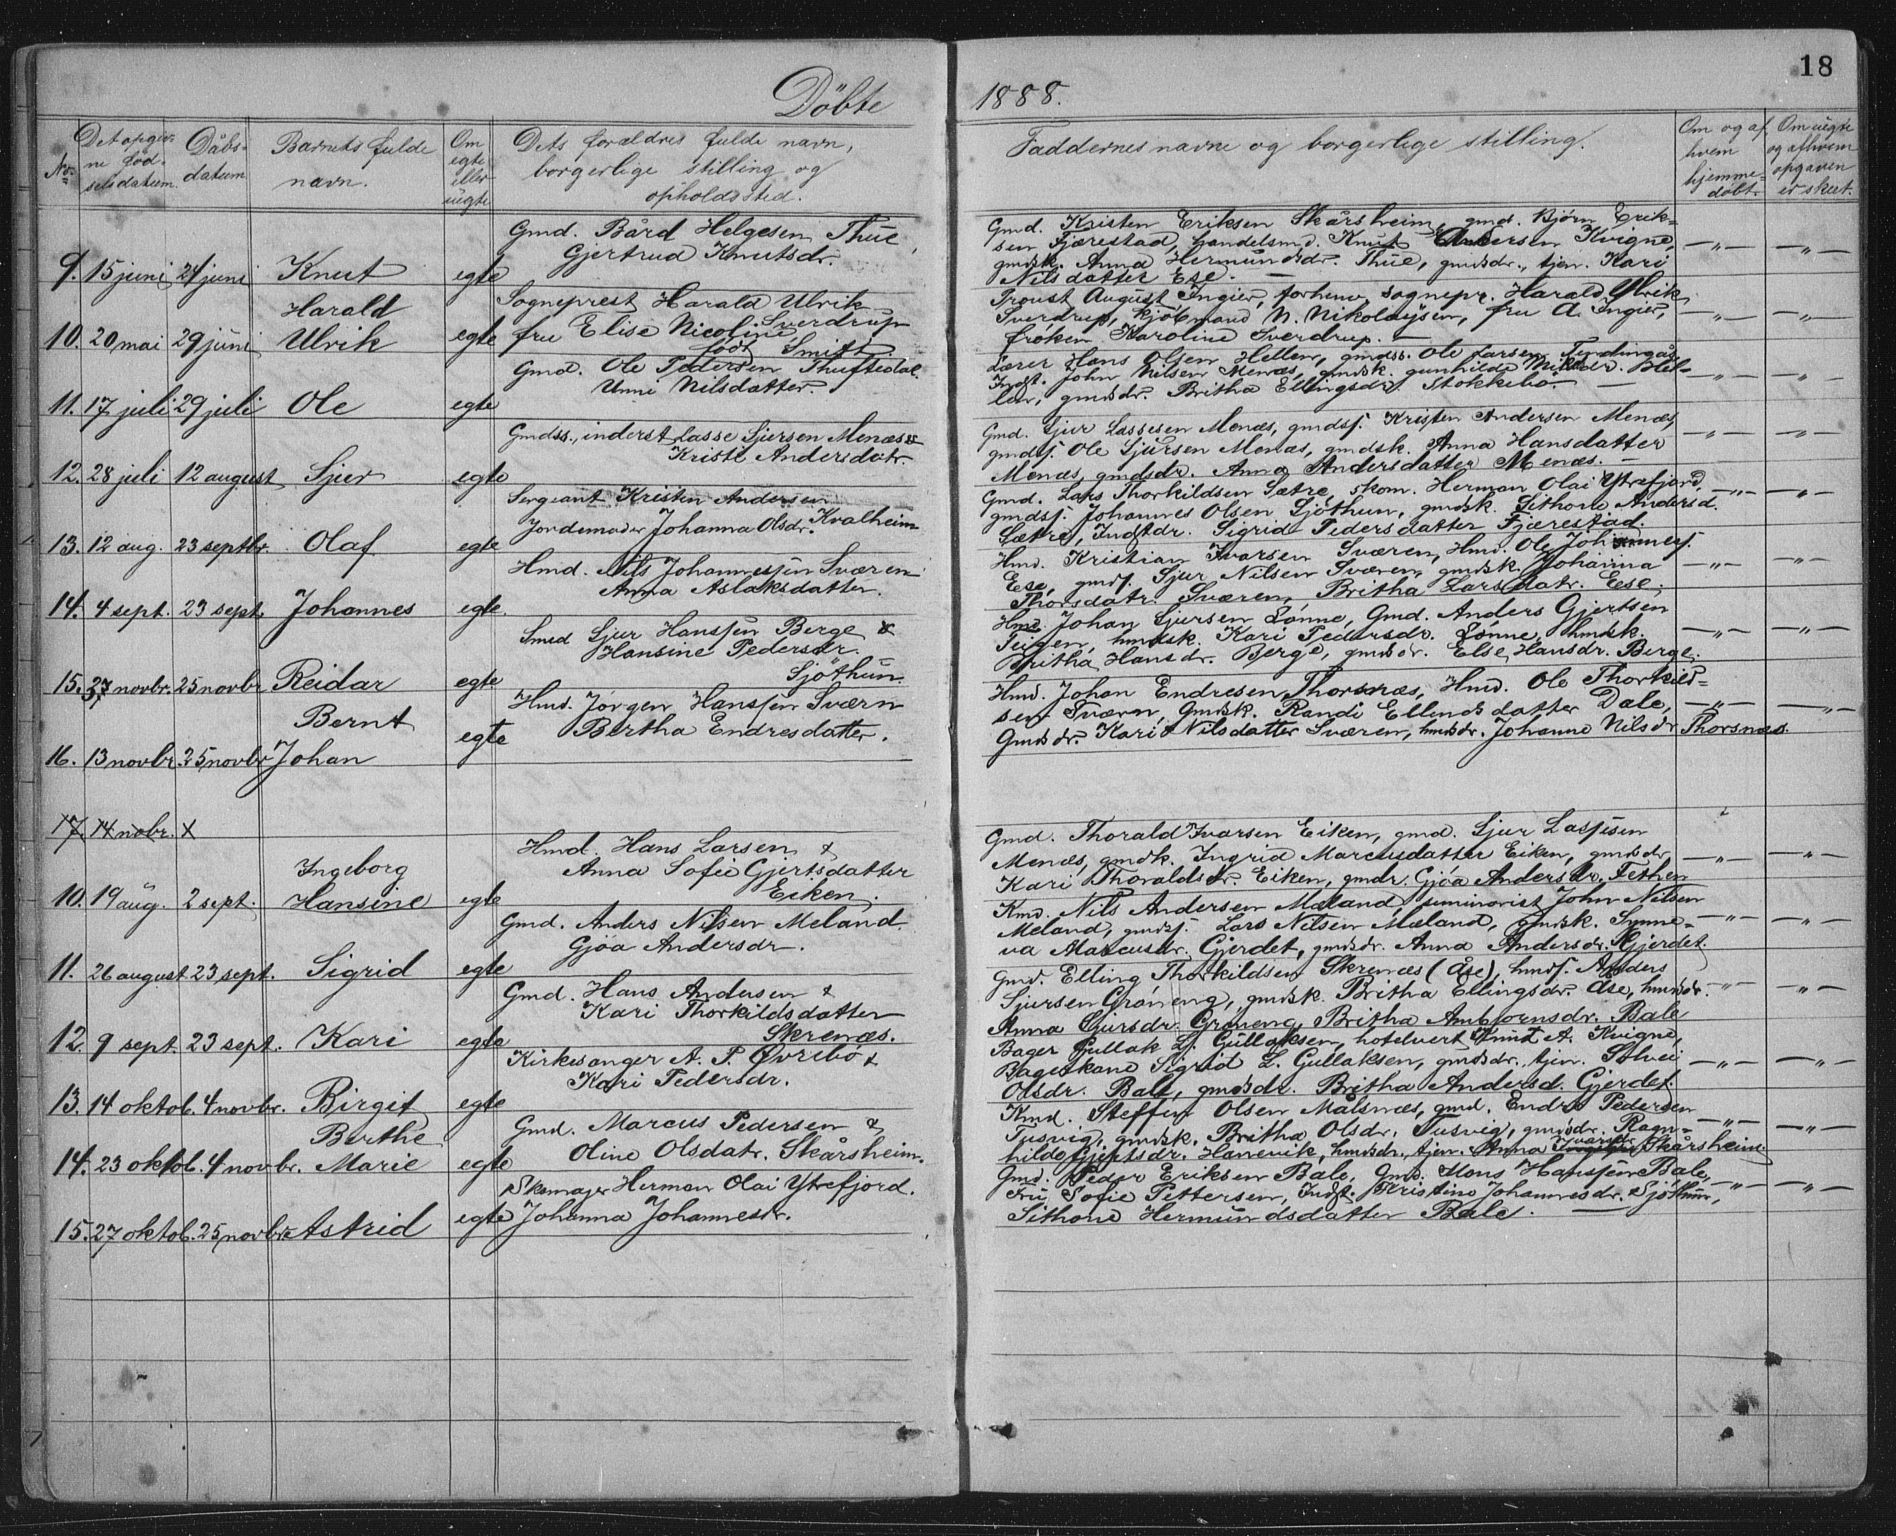 18
Döbte
1888.
No.
Det opgiv-
ne fød-
selsdatum.
Dåbs-
datum
Barnets fulde
navn.
Om
egte
eller
uegte
Dets forældres fulde navn,
borgerlige stilling og
opholdssted.
Faddernes navne og borgerlige stilling.
Om og af
hvem
hjemme-
döbt.
Om uegte
og af hvem
opgaven
er skeet.
9. 15 juni 24 juni Knut egte
Gmd. Bård Helgesen Thue,
Gjertrud Knutsdr.
Gmd. Kristen Eriksen Skårsheim, gmd. Björn Erik-
sen Fjærestad, handelsmd. Knut Andersen Kvigne,
gmdsk. Anna Hermundsdr. Thue, gmdsdr., tjen. Kari
Nilsdatter Ese. — — " — — " —
Harald
10. 20 mai 29 juni Ulrik egte
Sogneprest Harald Ulrik
Sverdrup
fru Elise Nicoline
født Smitt.
Proust August Ingier, forhenv. sognepr. Harald Ulrik
Sverdrup, kjöbmand N. Nikolaysen, fru A. Ingier,
fröken Karoline Sverdrup. — — " — — " —
11. 17 juli 29 juli Ole egte
Gmd. Ole Pedersen Thuftedal
Unni Nilsdatter.
Lærer Hans Olsen Hellen, gmdss. Ole Larsen
Indst. John Nilsen Menæs, gmdsk. Gunhilde Hel-
len, gmdsdr. Britha Ellingsdr. Stokkebö. — — " — — " —
12. 28 juli 12 august Sjur egte
Gmdss., inderst Lasse Sjursen Menæs &
Kristi Andersdatr.
Gmd. Sjur Lassesen Menæs, gmdsf. Kristen Andersen Menæs,
gmdsf. Ole Sjursen Menæs, gmdsk. Anna Hansdatter
Menæs, gmdsdr. Anna Andersdatter Menæs. — — " — — " —
13. 12 aug. 23 septbr. Olaf egte
Sergeant Kristen Andersen
Jordemoder Johanna Olsdr. Kvalheim
Gmd. Lars Thorkildsen Sætre, skom. Herman Olai Ytrefjord,
gmdsf. Johannes Olsen Sjöthun, gmdsk. Sithone Andersd.
Sætre, Indstdr. Sigrid Pedersdatter Fjærestad. — " — — " —
14. 4 sept. 23 sept. Johannes egte
Hmd. Nils Johannessen Sværen
Anna Aslaksdatter.
Hmd. Kristian Ivarsen Sværen, Hmd. Ole Johannesf.
Ese, gmdsf. Sjur Nilsen Sværen, gmdsk. Johanna
Thorsdatr. Sværen, Britha Larsdatr. Ese. — " — — " —
15. 27 novbr. 25 novbr Reidar egte
Smed Sjur Hanssen Berge &
Hansine Pedersdr.
Sjöthun.
Hmd. Johan Sjursen Lönne, Gmd. Anders Gjertsen
Teigen, hmdsk. Kari Pedersdr. Lönne, hmdsk.
Britha Hansdr. Berge, gmdsdr. Else Hansdr. Berge. — " — — " —
Bernt
16. 13 novbr. 25 novbr Johan egte
Hmd. Jörgen Hanssen Sværn
Bertha Endresdatter.
Hmd. Johan Endresen Thorsnæs, Hmd. Ole Thorkild-
sen Sværn, Gmdsk. Randi Ellendsdatter Dale, — " — — " —
Gmdsdr. Kari Nilsdatter Sværen, hmdsdr. Johanne Nilsdr. Thorsnæs.
17. 14 nobr. x
Ingeborg
10. 19 aug. 2 sept. Hansine egte
Hmd. Hans Larsen &
Anna Sofie Gjertsdatter
Eiken.
Gmd. Thorald Ivarsen Eiken, gmd. Sjur Lassesen
Menæs, gmdk. Ingrid Marcusdatter Eiken, gmdsdr
Kari Thoraldsdr. Eiken, gmdr. Gjöa Andersdr. Fethen — " — — " —
11. 26 august 23 sept. Sigrid egte
Gmd. Anders Nilsen Meland.
Gjöa Andersdr.
Kmd. Nils Andersen Mæland, seminarist John Nilsen
Meland, gmdsf. Lars Nilsen Mæland, gmdsk. Synne-
va Marcusdr. Gjerdet, gmdsdr. Anna Andersdr. Gjerdet. — " — — " —
12. 9 sept. 23 sept. Kari egte
Gmd. Hans Andersen &
Kari Thorkildsdatter
Skrenæs.
Gmd. Elling Thorkildsen Skrenæs (Åse), hmdsf. Anders
Sjursen Gröneng, gmdsk. Britha Ellingsdr. Åse, hmdsdr.
Anna Sjursdr. Gröneng, Britha Ambjörnsdr. Bale — " — — " —
13. 14 oktob. 4 novbr. Birgit egte
Kirkesanger A. P. Övrebö &
Kari Pedersdr.
Bager Gullak L. Gullaksen, hotelvert Knut A. Kvigne,
Bagerkone Sigrid L. Gullaksen, gmdsdr. tjen. Solvei
Olsdr. Bale, gmdsdr. Britha Andersd. Gjerdet. — " — — " —
Berthe
14. 23 oktob. 4 novbr. Marie egte
Gmd. Marcus Pedersen &
Oline Olsdatr. Skårsheim.
Kmd. Steffen Olsen Målsnæs, gmd. Endre Pedersen
Tusvig, gmdsk. Britha Olsdr. Tusvig, gmdsdr. Ragn-
hilde Gjertsdr. Hanevik, hmdsdr., tjen. Anna Ivarsdr. Skårsheim — " — — " —
15. 27 oktob. 25 novbr. Astrid egte
Skomager Herman Olai Ytrefjord.
Johanna Johannesdr.
Gmd. Peder Eriksen Bale, Gmd. Mons Hanssen Bale,
Fru Sofie Pettersen, Indst. Kristine Johannesdr. Sjöthun,
Sithone Hermundsdatter Bale. — — " — — " —